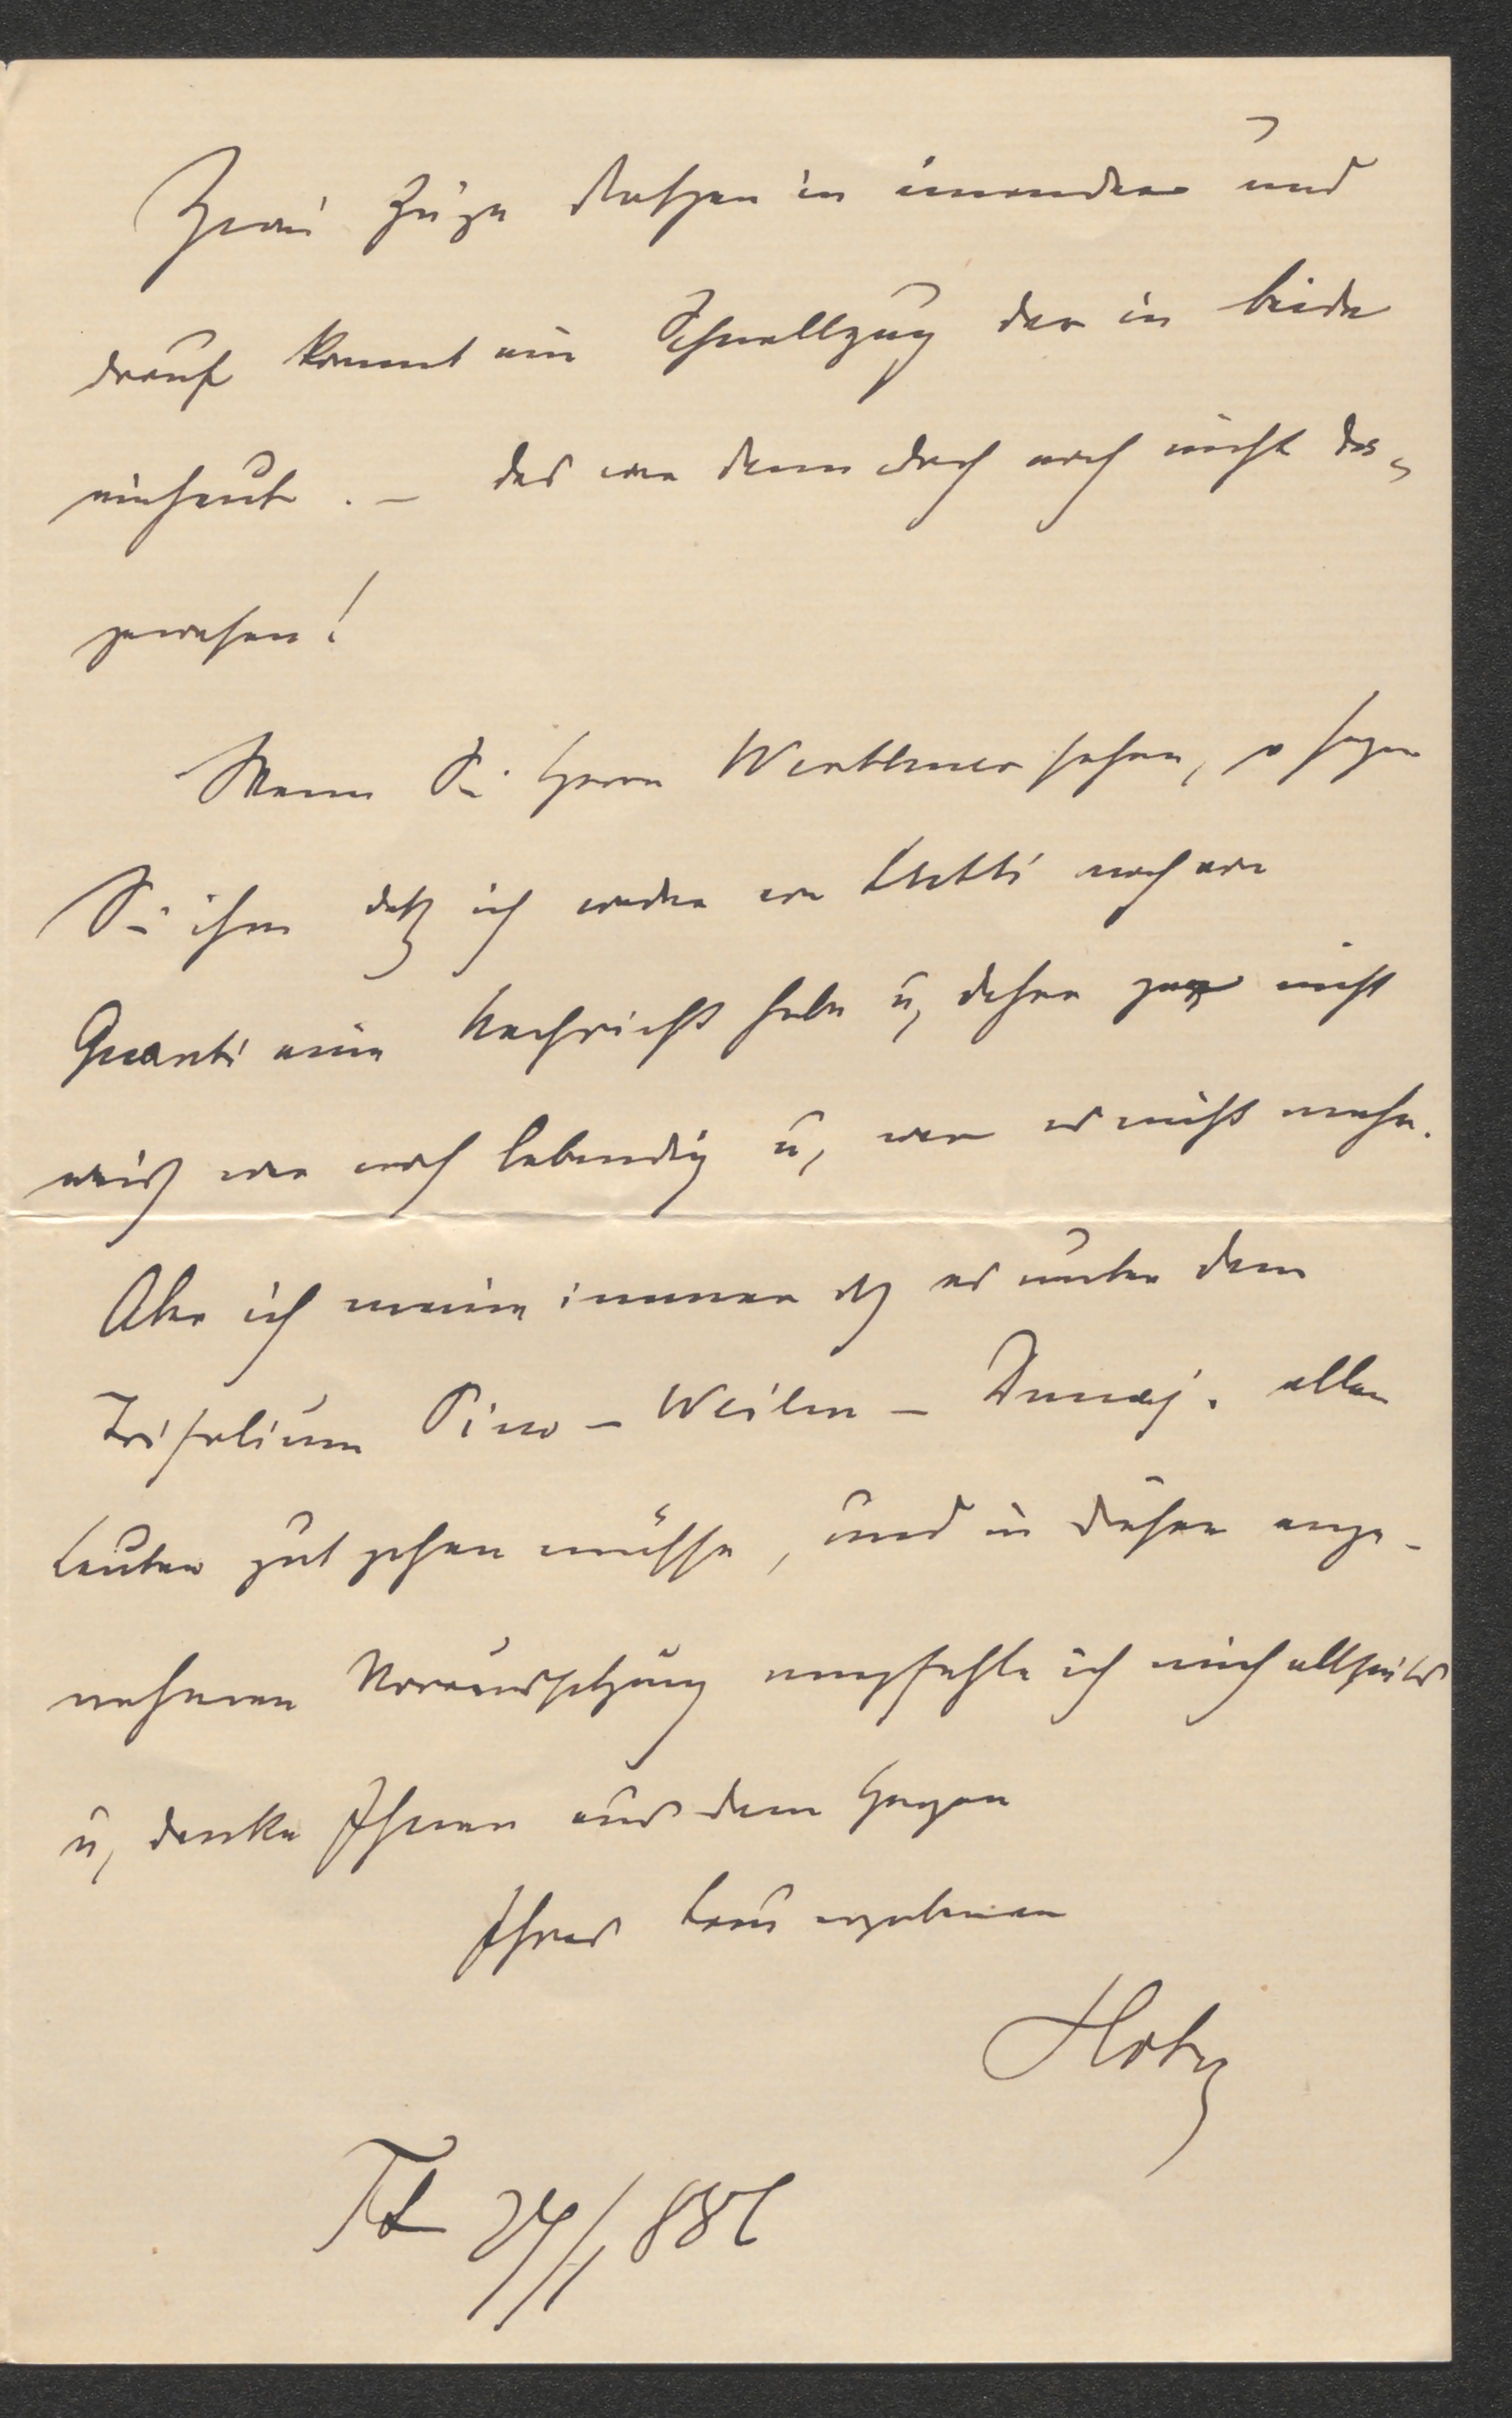 Zwei Züge stoßen in einander und
drauf kommt ein Schnellzug der in beide
einhaut. – das war denn doch noch nicht da-
gewesen!
Wenn Sie Herrn Werthner sehen, so sagen
Sie ihm daß ich weder von Tutti noch von
Quanti eine Nachricht habe u, daher gar nicht
weiß wer noch lebendig u, wer es nicht mehr.
Aber ich meine immer dß es unter dem
Trifolium Pino – Weilen – Dunaj. allen
Leuten gut gehen müsse, und in dieser ange-
nehmen Voraussetzung empfehle ich mich allseits
u, danke Ihnen aus dem
Ihres ergebenen
24/1 886